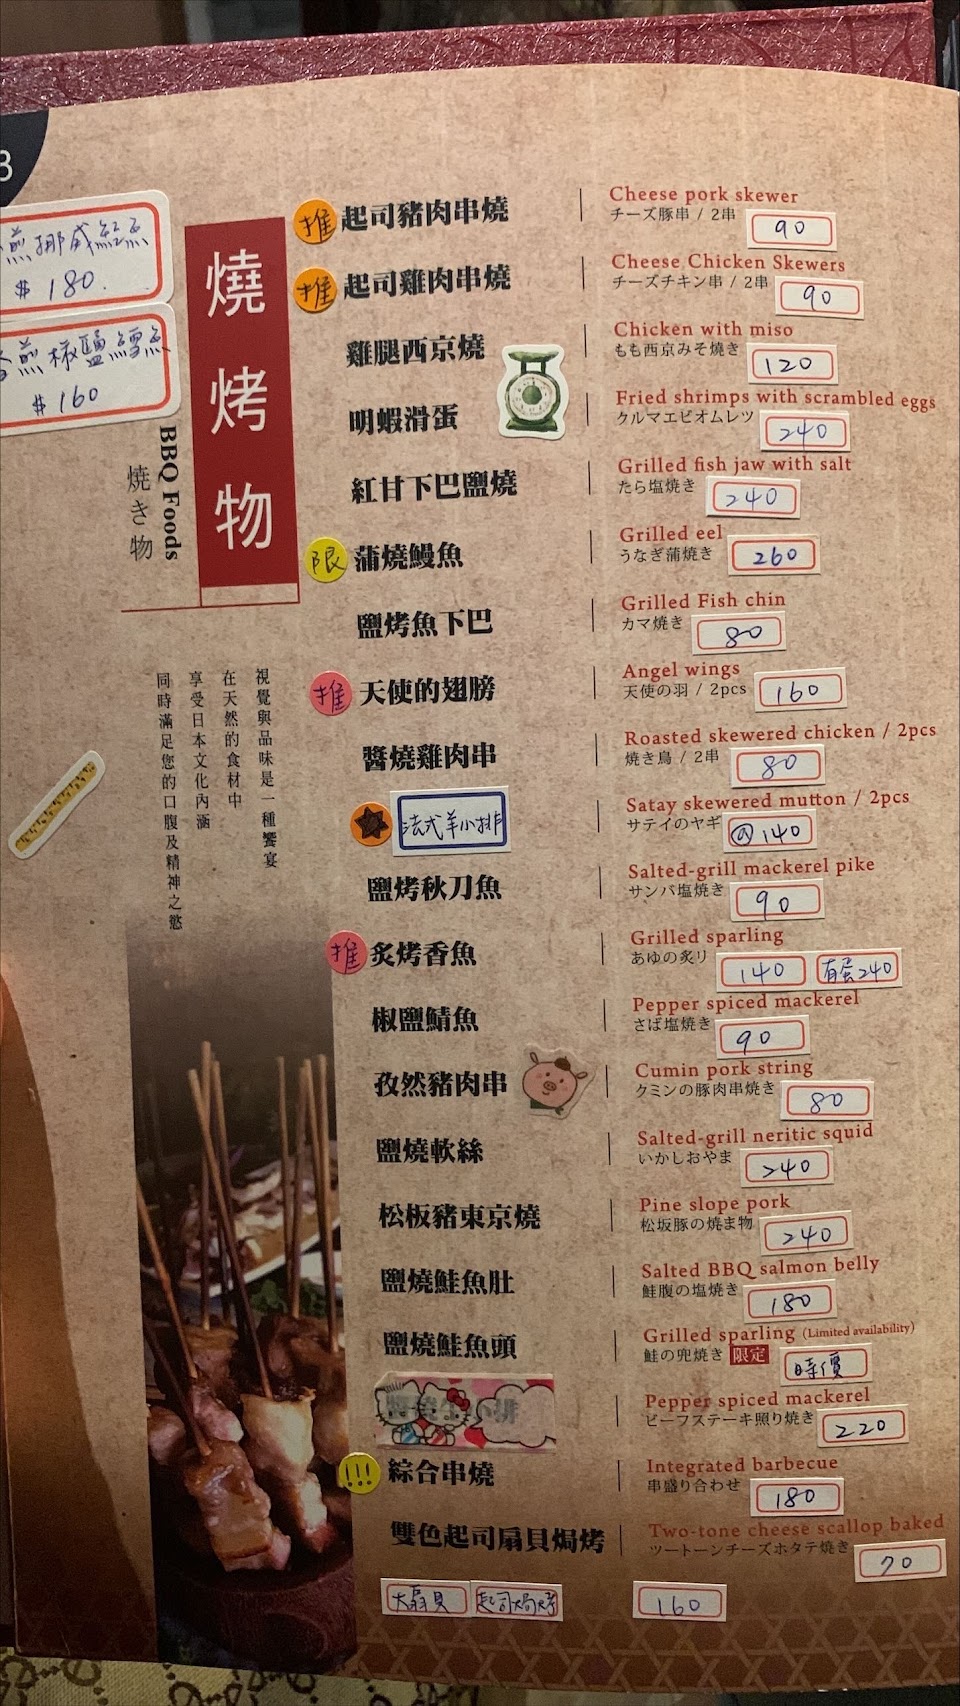 3
煎挪威魟魚
$180.
香煎椒鹽鱈魚
$160
燒烤物
BBQ Foods
焼き物
視覺與品味是一種饗宴
在天然的食材中
享受日本文化內涵
同時滿足您的口腹及精神之慾
推 起司豬肉串燒
Cheese pork skewer
チーズ豚串 / 2串 90
推 起司雞肉串燒
Cheese Chicken Skewers
チーズチキン串 / 2串 90
雞腿西京燒
Chicken with miso
もも西京みそ焼き 120
明蝦滑蛋
Fried shrimps with scrambled eggs
クルマエビオムレツ 240
紅甘下巴鹽燒
Grilled fish jaw with salt
たら塩焼き 240
限 蒲燒鰻魚
Grilled eel
うなぎ蒲焼き 260
鹽烤魚下巴
Grilled Fish chin
カマ焼き 80
推 天使的翅膀
Angel wings
天使の羽 / 2pcs 160
醬燒雞肉串
Roasted skewered chicken / 2pcs
焼き鳥 / 2串 80
法式羊小排
Satay skewered mutton / 2pcs
サテイのヤギ @140
鹽烤秋刀魚
Salted-grill mackerel pike
サンバ塩焼き 90
推 炙烤香魚
Grilled sparling
あゆの炙リ 140 有蛋240
椒鹽鯖魚
Pepper spiced mackerel
さば塩焼き 90
孜然豬肉串
Cumin pork string
クミンの豚肉串焼き 80
鹽燒軟絲
Salted-grill neritic squid
いかしおやま 240
松板豬東京燒
Pine slope pork
松坂豚の焼ま物 240
鹽燒鮭魚肚
Salted BBQ salmon belly
鮭腹の塩焼き 180
鹽燒鮭魚頭
Grilled sparling (Limited availability)
鮭の兜焼き 限定 時價
Pepper spiced mackerel
ビーフステーキ照り焼き 220
!!! 綜合串燒
Integrated barbecue
串盛り合わせ 180
雙色起司扇貝焗烤
Two-tone cheese scallop baked
ツートーンチーズホタテ焼き 70
大扇貝 起司焗烤 160